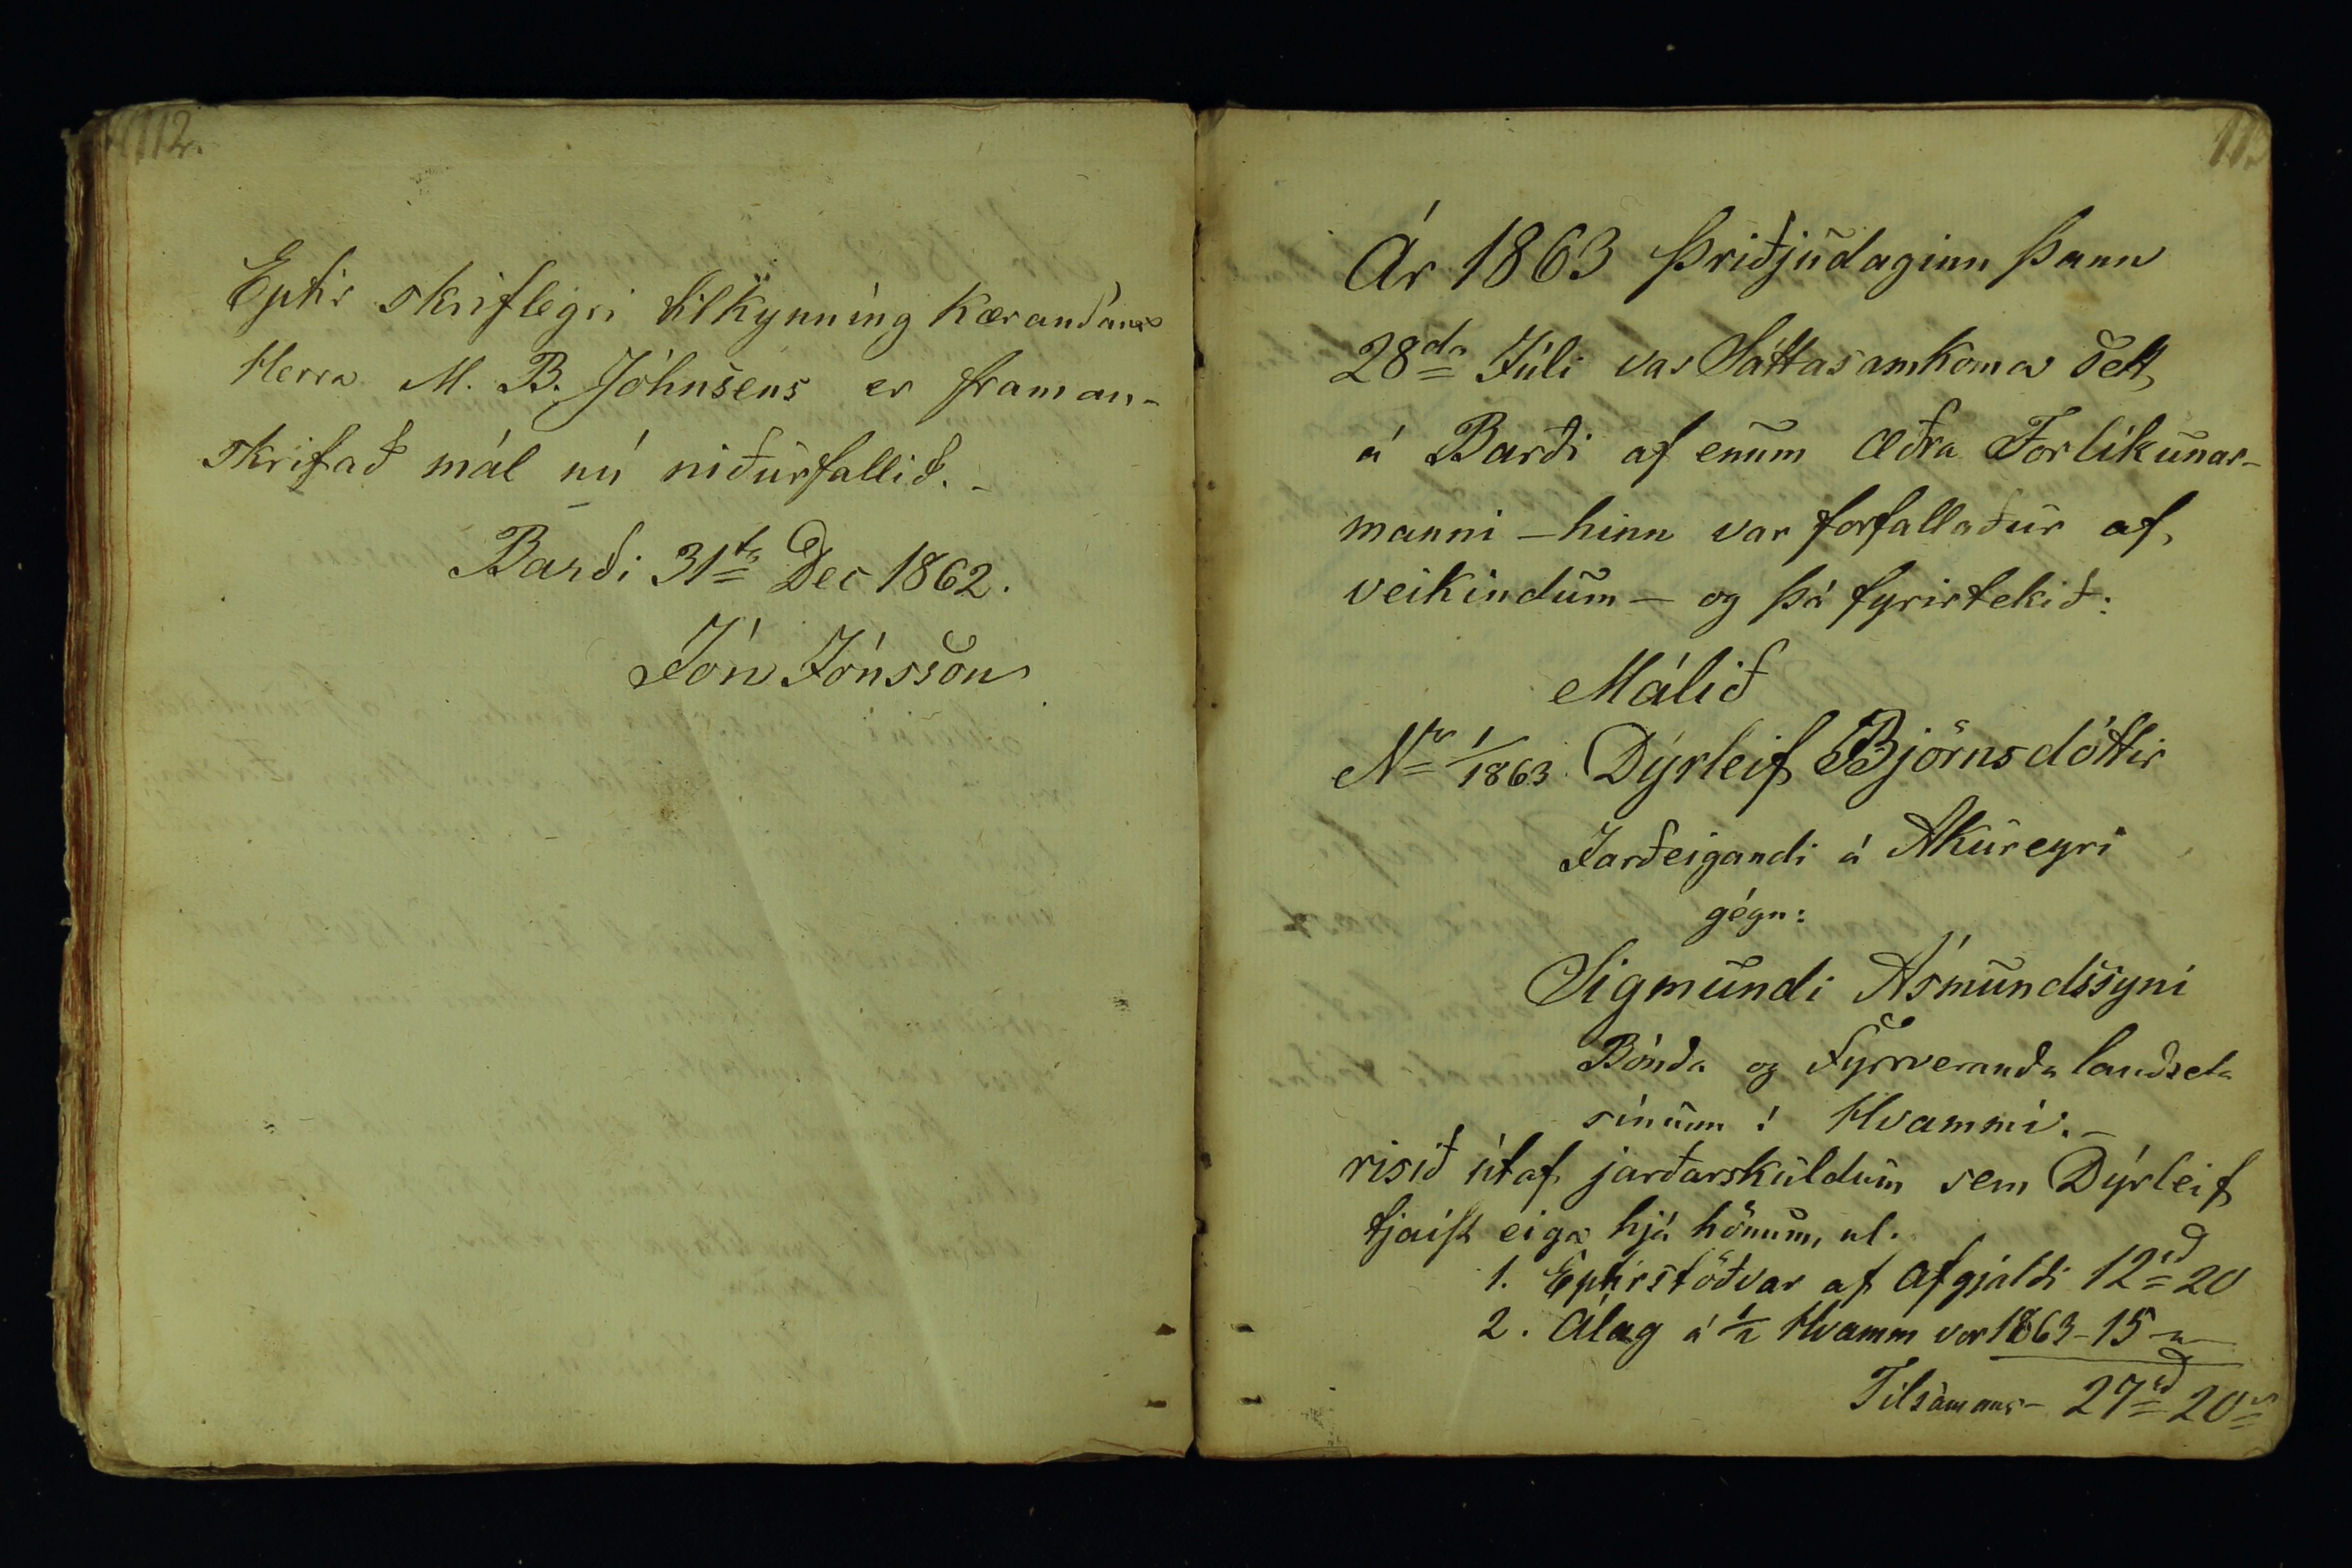 112.
Eptir skriflegri tilkynníng kærandans
Herra M. B. Jóhnsens er framan-
skrifað mál nú niðurfallið. -
Barði 31ta Dec 1862.
Jón Jónsson
113
Ár 1863 Þriðjudaginn þann
28da Júli var Sáttasamkoma sett
á Barði af enum æðra Forlíkunar-
manni - hinn var forfallaður af
veikindum - og þá fyrirtekið:
Málið
Nr 1/1863 Dýrleif Björnsdóttir
Jarðeigandi á Akureyri
gégn:
Sigmundi Ásmundssyni
Bónda og Fyrrveranda landseta
sínum í Hvammi. -
risið útaf jarðarskuldum sem Dýrleif
tjáist eiga hjá hönum, nl.
1. Eptirstöðvar af afgjaldi 12rd 20
2. Álag á 1/2 Hvamm vor 1863 - 15 - "
Tilsamans - 27rd 20s